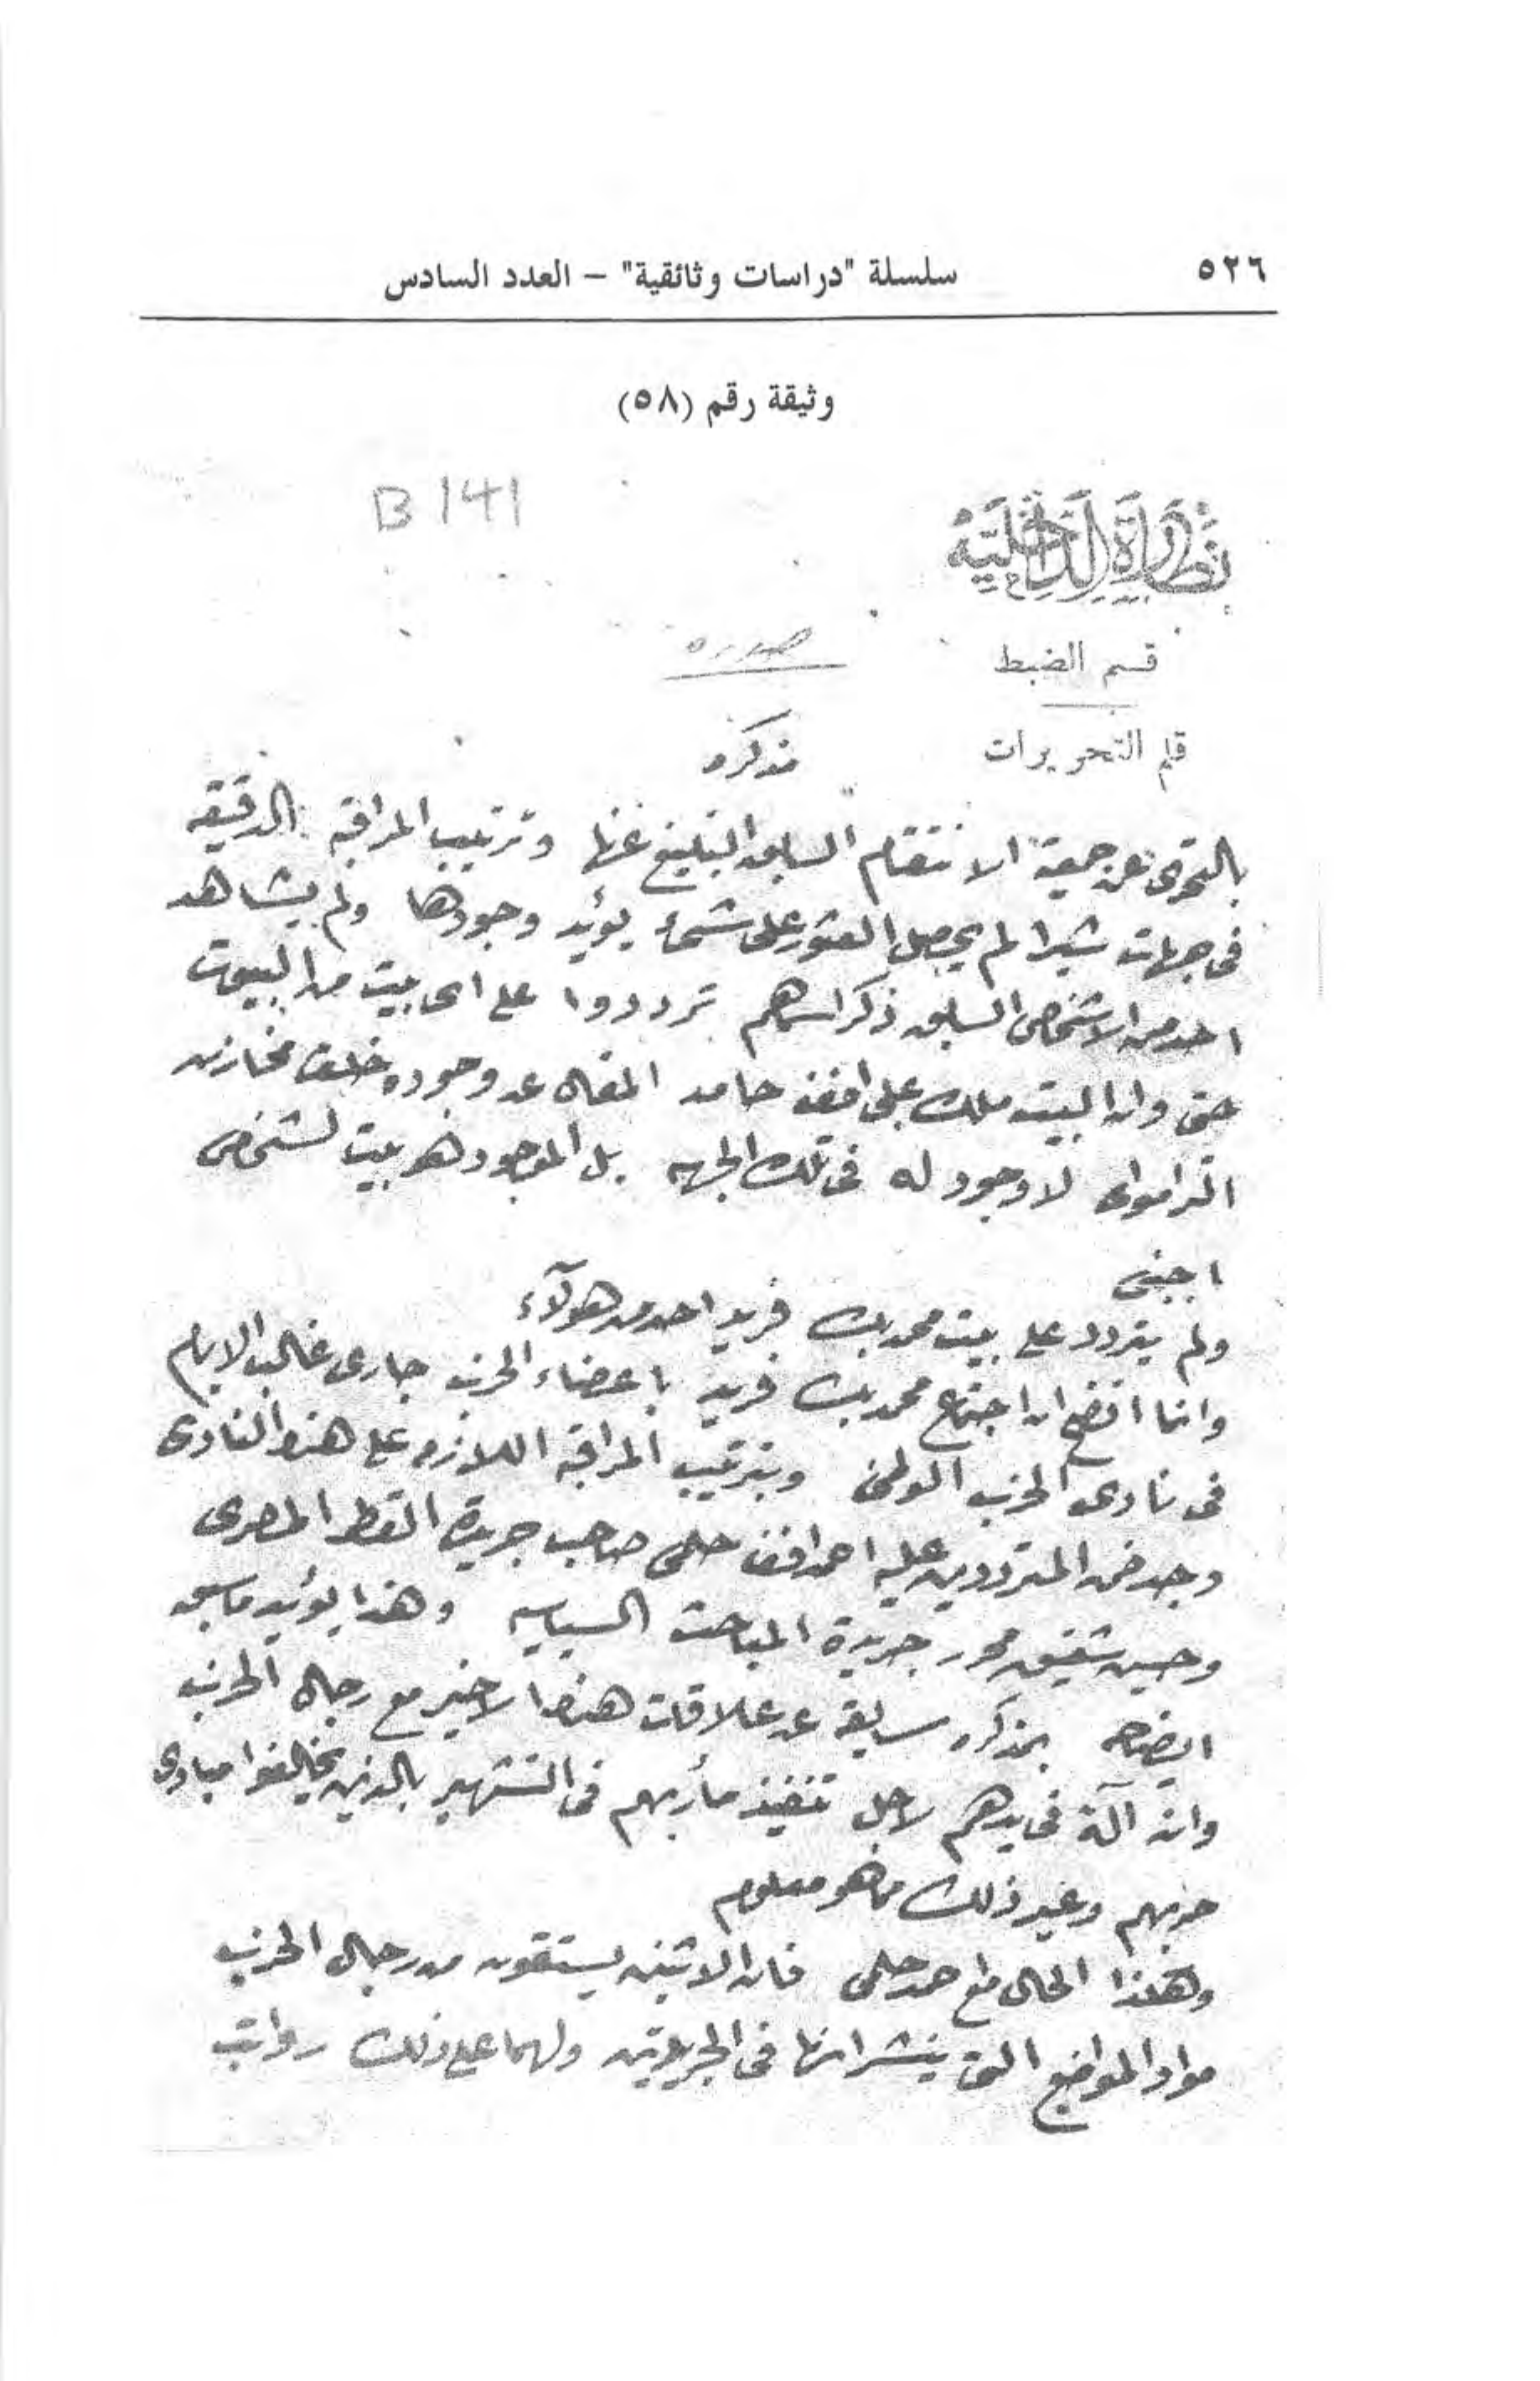 ٥٢٦
سلسلة "دراسات وثائقية" – العدد السادس
وثيقة رقم (٥٨)
B 141
نظارة الداخلية
صوره
قسم الضبط
قلم التحريرات
مذكره
بالتحرى عن جمعية الانتقام السابق التبليغ عنها وترتيب المراقبه الدقيقه
فى جهات شبرا لم يحصل العثور على شئ يؤيد وجودها ولم يشاهد
احد من الاشخاص السابق ذكر اسماهم ترددوا على اى بيت من البيوت
حتى وان البيت ملك على افندى حامد المقال عن وجوده خلف مخازن
الترامواى لا وجود له فى تلك الجهه بل الموجود هو بيت لشخص
اجنبى
ولم يتردد على بيت محمد بك فريد احد من هولآء
وانما اتضح ان اجتماع محمد بك فريد باعضاء الحزب جارى غالب الايام
فى نادى الحزب الوطنى وبترتيب المراقبه اللازمه على هذا النادى
وجد ضمن المترددين عليه احمد افندى حلمى صاحب جريدة القطر المصرى
وحسين شفيق محرر جريدة المباحث السياسيه وهذا يؤيد ما سبق
ايضاحه بمذكره سابقة عن علاقات هذا الاخير مع رجال الحزب
وانه آلة فى يدهم لاجل تنفيذ مأربهم فى التشهير بالذين يخالفوا مبادى
حزبهم وغير ذلك مما هو معلوم
وهكذا الحال مع احمد حلمى فان الاثنين يستقون من رجال الحزب
مواد المواضيع التى ينشرانها فى الجريدتين ولهما على ذلك رواتب